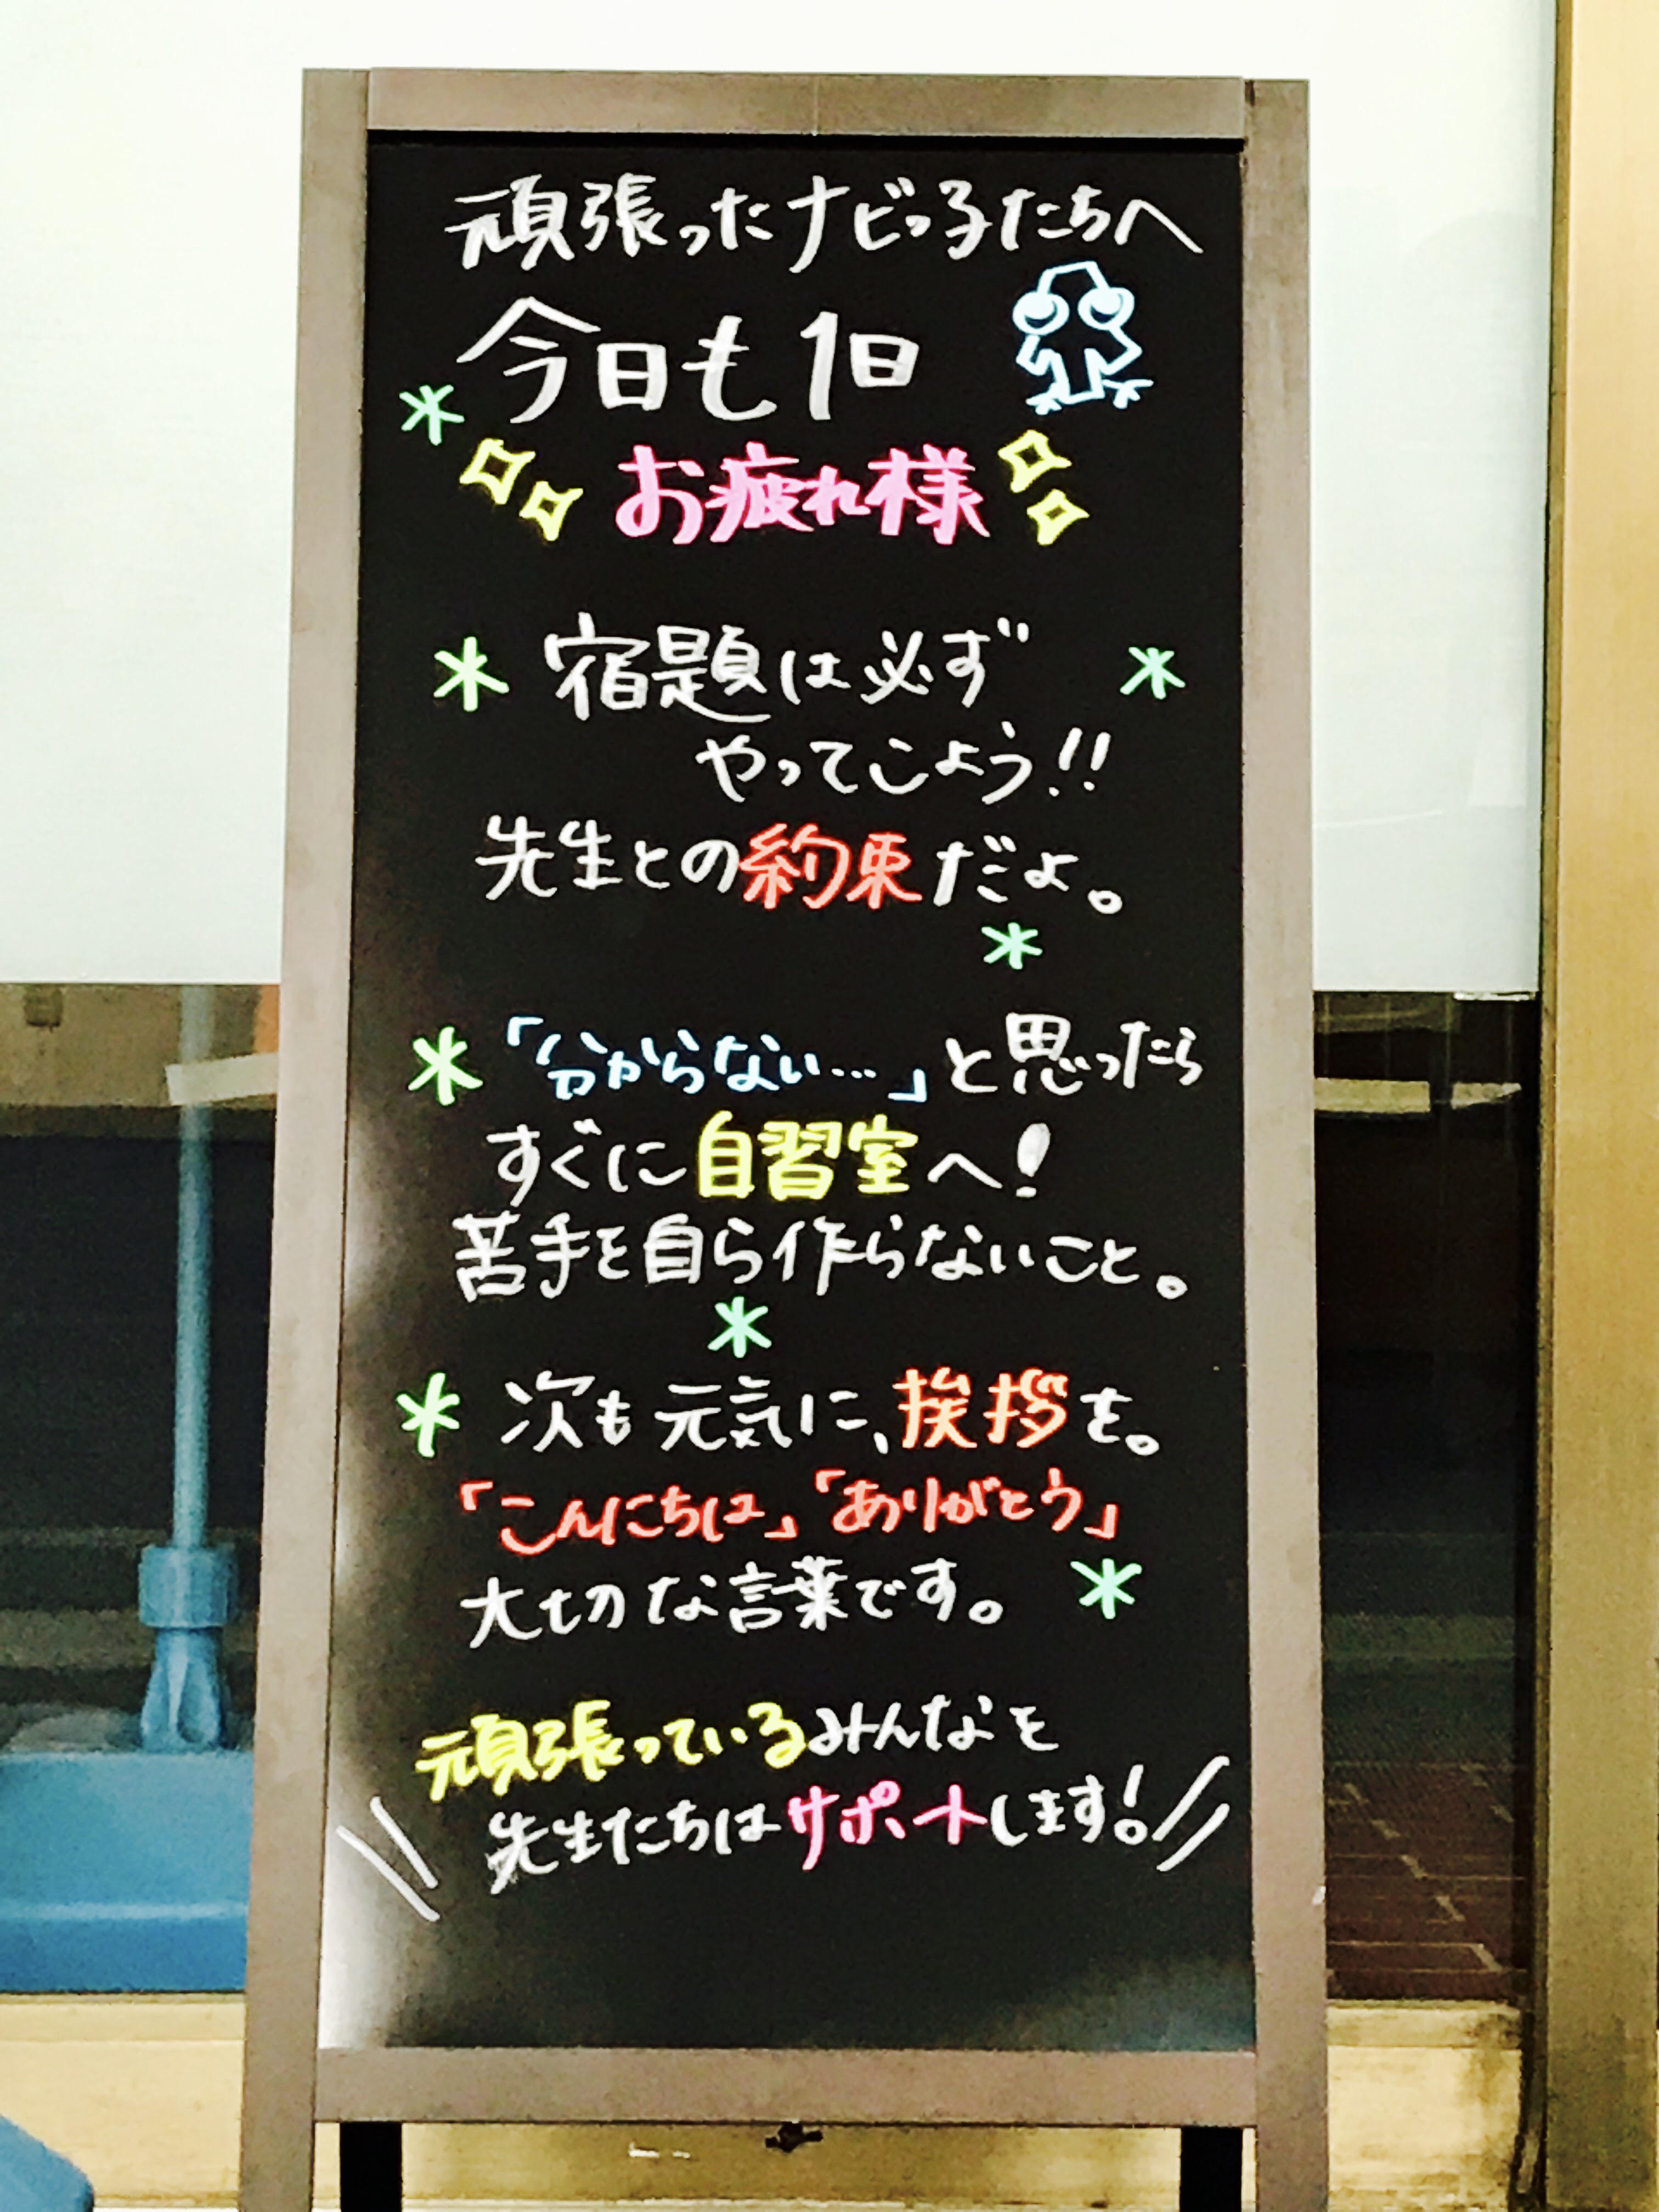 頑張ったナビっ子たちへ
今日も1日
お疲れ様
* 宿題は必ず *
やってこよう!!
先生との約束だよ。
* 「分からない…」と思ったら
すぐに自習室へ!
苦手を自ら作らないこと。
* 次も元気に、挨拶を。
「こんにちは」「ありがとう」
大切な言葉です。
頑張っているみんなを
先生たちはサポートします!